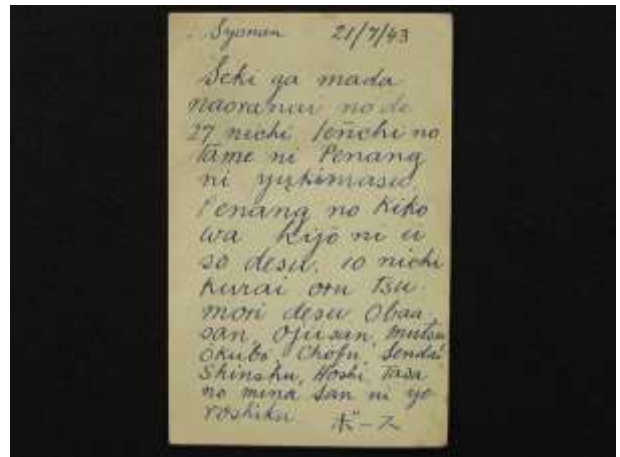 Syonan 21/7/43
Seki ga mada
naoranai no de
27 nichi, tenchi no
tame ni Penang
ni yukimasu.
Penang no kiko
wa hijō ni ii
so desu. 10 nichi
kurai oru tsu-
mori desu. Obaa
san, Ojiisan, mutsu
Okubo, Chofu, Sendai
Shinshu, Hoshi, Tasa
no mina san ni yo
roshiku. ボース